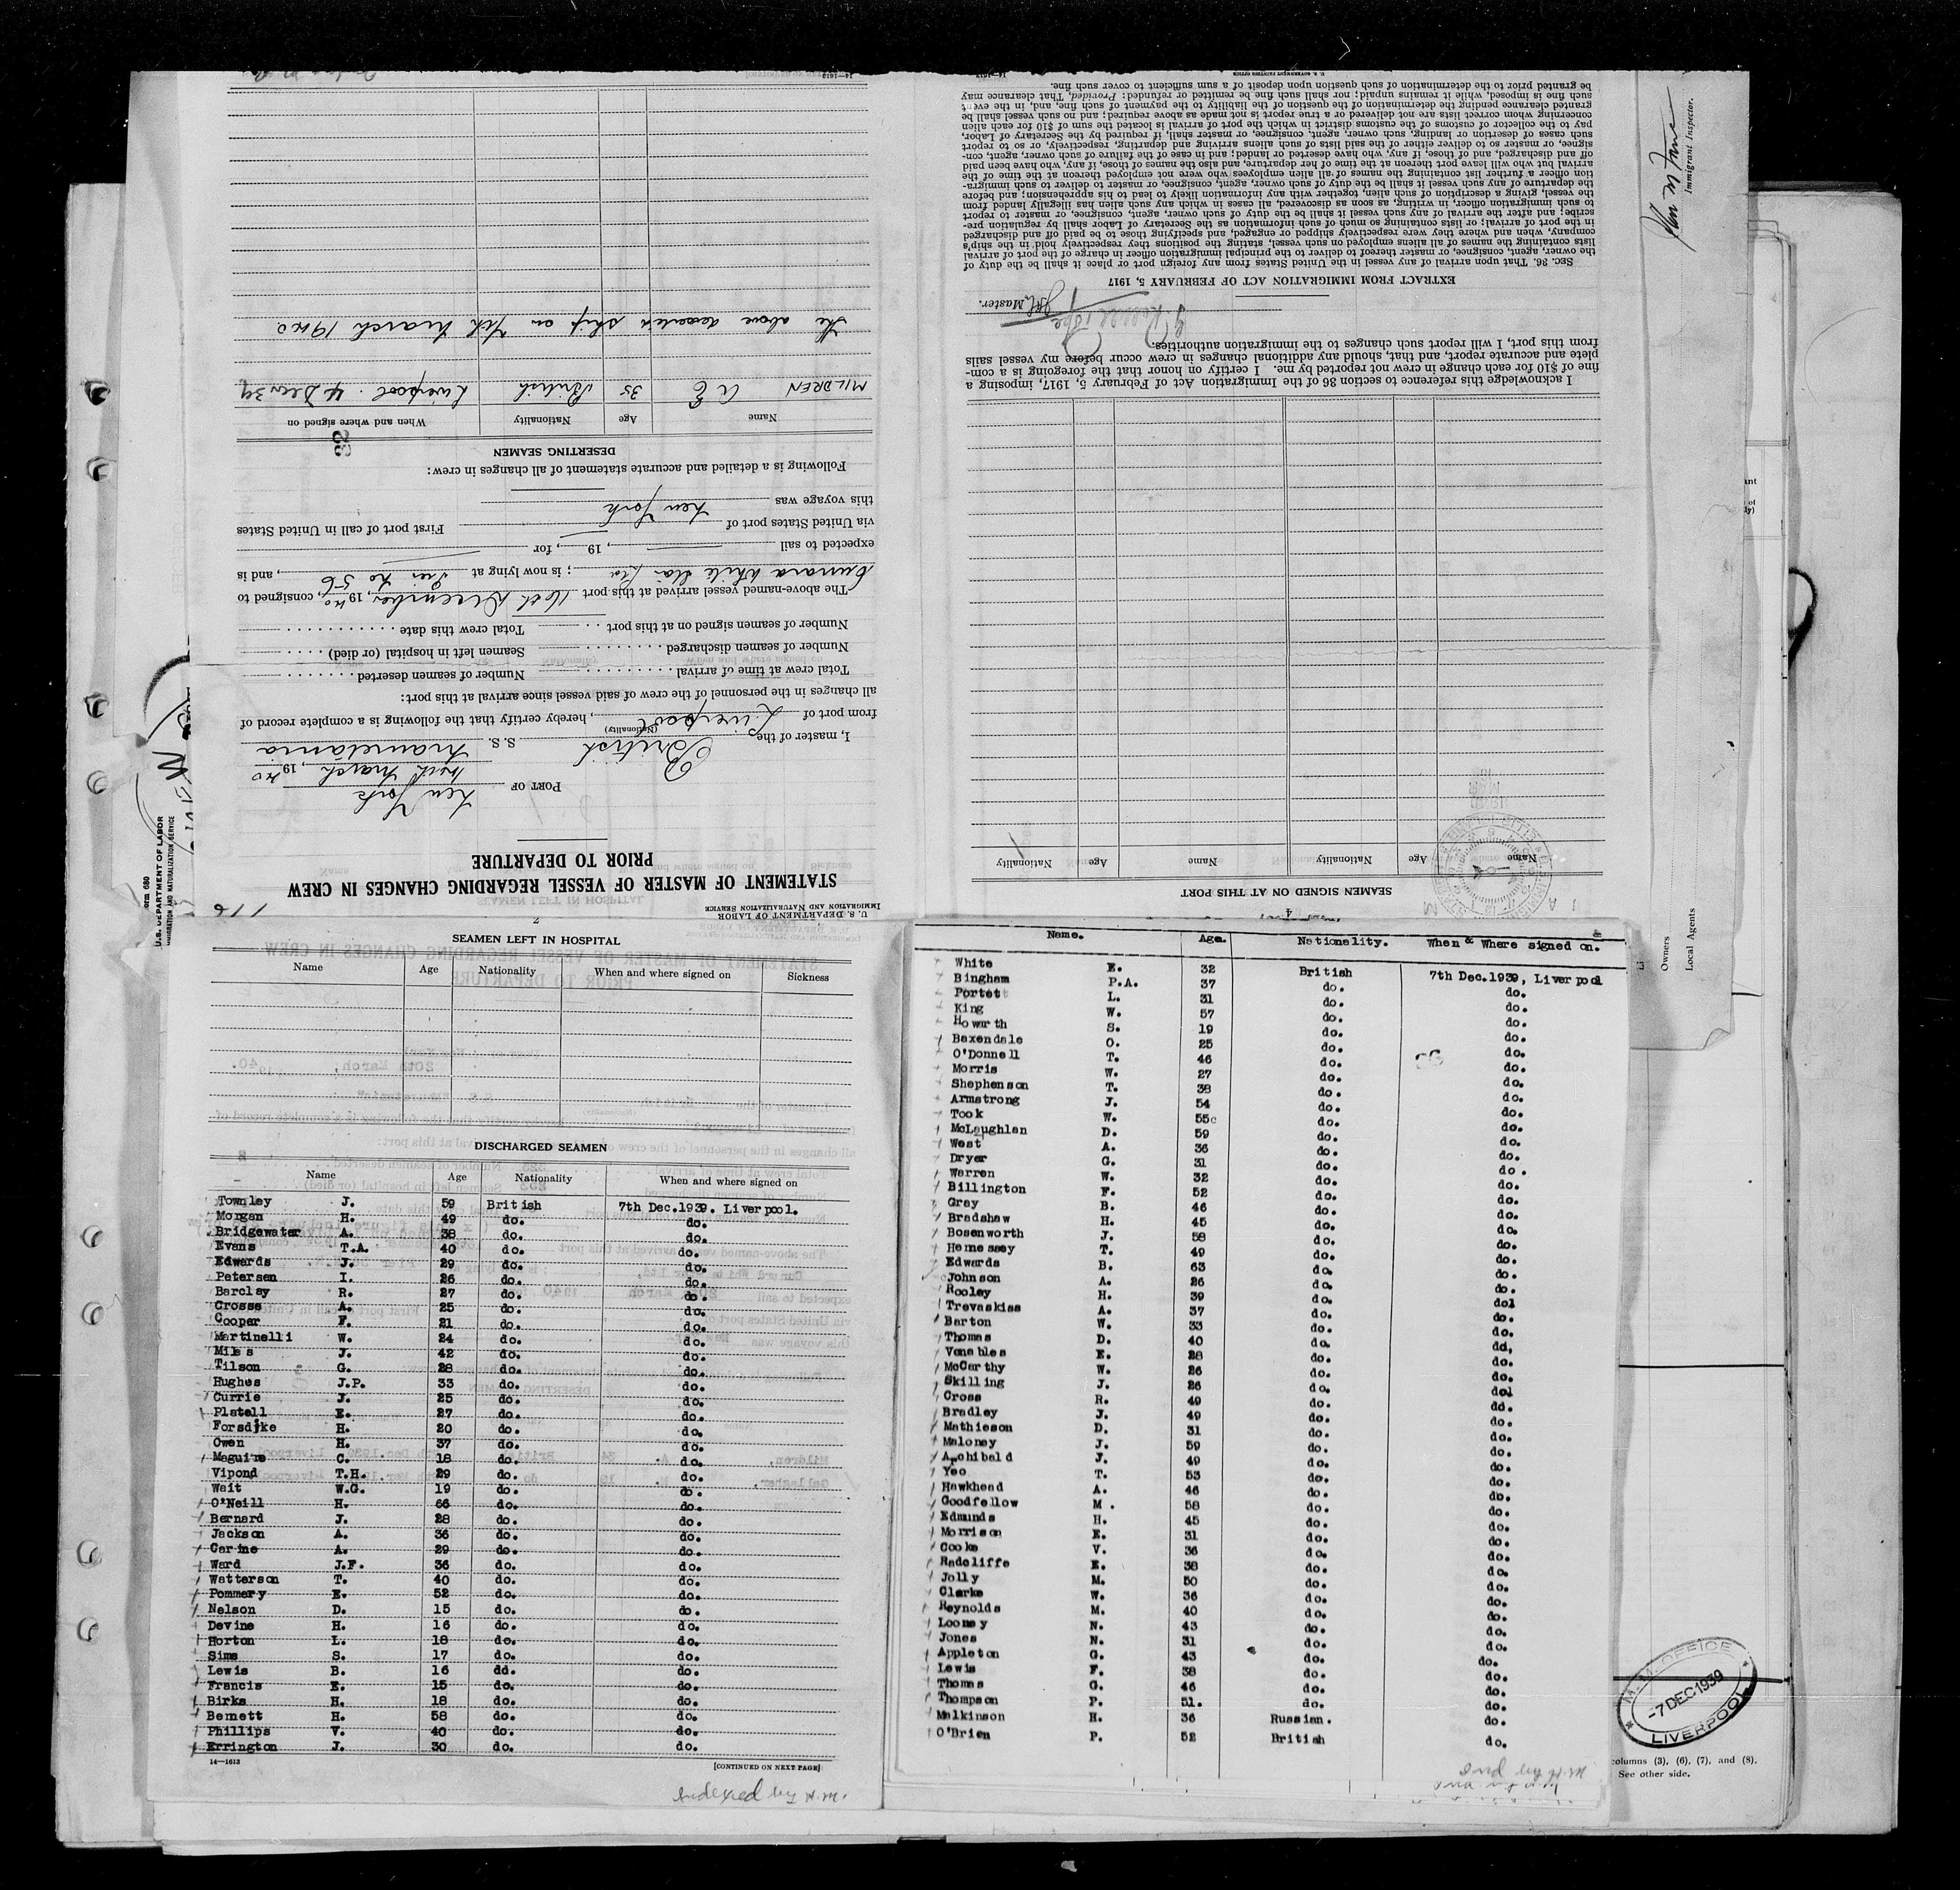 U. S. DEPARTMENT OF LABOR
IMMIGRATION AND NATURALIZATION SERVICE
STATEMENT OF MASTER OF VESSEL REGARDING CHANGES IN CREW
PRIOR TO DEPARTURE
PORT OF New York
March, 1940
I, master of the British S. S. Mauretania
(Nationality)
from port of Liverpool, hereby certify that the following is a complete record of
all changes in the personnel of the crew of said vessel since arrival at this port:
Total crew at time of arrival Number of seamen deserted
Number of seamen discharged Seamen left in hospital (or died)
Number of seamen signed on at this port Total crew this date
The above-named vessel arrived at this port 16th December, 1940, consigned to
Cunard White Star Ltd; is now lying at Pier No 56, and is
expected to sail , 19 , for
via United States port of First port of call in United States
this voyage was New York
Following is a detailed and accurate statement of all changes in crew:
DESERTING SEAMEN
Name Age Nationality When and where signed on
32
MILDREN A E 35 British Liverpool. 4 Decr 39
The above deserted ship on 7th March 1940
4
SEAMEN SIGNED ON AT THIS PORT
Name Age Nationality Name Age Nationality
I acknowledge this reference to section 36 of the Immigration Act of February 5, 1917, imposing a
fine of $10 for each change in crew not reported by me. I certify on honor that the foregoing is a com-
plete and accurate report, and that, should any additional changes in crew occur before my vessel sails
from this port, I will report such changes to the immigration authorities.
Master.
EXTRACT FROM IMMIGRATION ACT OF FEBRUARY 5, 1917
SEC. 36. That upon arrival of any vessel in the United States from any foreign port or place it shall be the duty of
the owner, agent, consignee, or master thereof to deliver to the principal immigration officer in charge of the port of arrival
lists containing the names of all aliens employed on such vessel, stating the positions they respectively hold in the ship's
company, when and where they were respectively shipped or engaged, and specifying those to be paid off and discharged
in the port of arrival; or lists containing so much of such information as the Secretary of Labor shall by regulation pre-
scribe; and after the arrival of any such vessel it shall be the duty of such owner, agent, consignee, or master to report
to such immigration officer, in writing, as soon as discovered, all cases in which any such alien has illegally landed from
the vessel, giving a description of such alien, together with any information likely to lead to his apprehension; and before
the departure of any such vessel it shall be the duty of such owner, agent, consignee, or master to deliver to such immigra-
tion officer a further list containing the names of all alien employees who were not employed thereon at the time of the
arrival but who will leave port thereon at the time of her departure, and also the names of those, if any, who have been paid
off and discharged, and of those, if any, who have deserted or landed; and in case of the failure of such owner, agent, con-
signee, or master so to deliver either of the said lists of such aliens arriving and departing, respectively, or so to report
such cases of desertion or landing, such owner, agent, consignee, or master shall, if required by the Secretary of Labor,
pay to the collector of customs of the customs district in which the port of arrival is located the sum of $10 for each alien
concerning whom correct lists are not delivered or a true report is not made as above required; and no such vessel shall be
granted clearance pending the determination of the question of the liability to the payment of such fine, and, in the event
such fine is imposed, while it remains unpaid; nor shall such fine be remitted or refunded: Provided, That clearance may
be granted prior to the determination of such question upon deposit of a sum sufficient to cover such fine.
U. S. GOVERNMENT PRINTING OFFICE
14—1613
Immigrant Inspector.
Owners
Local Agents
Form 680
U.S. DEPARTMENT OF LABOR
IMMIGRATION AND NATURALIZATION SERVICE
2
SEAMEN LEFT IN HOSPITAL
Name Age Nationality When and where signed on Sickness
DISCHARGED SEAMEN
Name Age Nationality When and where signed on
Townley J. 59 British 7th Dec.1939. Liverpool.
Morgan H. 49 do. do.
Bridgewater A. 38 do. do.
Evans T.A. 40 do. do.
Edwards J. 29 do. do.
Petersen I. 26 do. do.
Barclay R. 27 do. do.
Crosse A. 25 do. do.
Cooper F. 21 do. do.
Martinelli W. 24 do. do.
Miles J. 42 do. do.
Tilson G. 28 do. do.
Hughes J.P. 33 do. do.
Currie J. 25 do. do.
Platell E. 27 do. do.
Forsdjke H. 20 do. do.
Owen H. 37 do. do.
Maguire C. 18 do. do.
Vipond T.H. 29 do. do.
Wait W.G. 19 do. do.
O'Neill H. 66 do. do.
Bernard J. 28 do. do.
Jackson A. 36 do. do.
Carine A. 29 do. do.
Ward J.F. 36 do. do.
Watterson T. 40 do. do.
Pommery E. 52 do. do.
Nelson D. 15 do. do.
Devine H. 16 do. do.
Horton L. 18 do. do.
Sims S. 17 do. do.
Lewis B. 16 dd. do.
Francis E. 15 do. do.
Birks H. 18 do. do.
Bennett H. 58 do. do.
Phillips V. 40 do. do.
Errington J. 30 do. do.
14—1613
[CONTINUED ON NEXT PAGE]
Indexed by H.M.
Name. Age. Nationality. When & Where signed on.
White E. 32 British 7th Dec.1939, Liverpool
Bingham P.A. 37 do. do.
Portet L. 31 do. do.
King W. 57 do. do.
Howarth S. 19 do. do.
Baxendale O. 25 do. do.
O'Donnell T. 46 do. do.
Morris W. 27 do. do.
Shephenson T. 38 do. do.
Armstrong J. 54 do. do.
Took W. 55c do. do.
McLaughlan D. 59 do. do.
West A. 36 do. do.
Dryer G. 31 do. do.
Warren W. 32 do. do.
Billington F. 52 do. do.
Gray B. 46 do. do.
Bradshaw H. 45 do. do.
Bosenworth J. 58 do. do.
Hennessey T. 49 do. do.
Edwards B. 63 do. do.
Johnson A. 26 do. do.
Rooley H. 39 do. dol
Trevaskiss A. 37 do. do.
Barton W. 33 do. do.
Thomas D. 40 do. dd,
Venables E. 28 do. do.
McCarthy W. 26 do. do.
Skilling J. 26 do. dol
Cross R. 49 do. dd.
Bradley J. 49 do. do.
Mathieson D. 31 do. do.
Maloney J. 59 do. do.
Archibald J. 49 do. do.
Yeo T. 53 do. do.
Hawkhead A. 46 do. do.
Goodfellow M. 58 do. do.
Edmunds H. 45 do. do.
Morrison E. 31 do. do.
Cooke V. 36 do. do.
Radcliffe E. 38 do. do.
Jolly M. 50 do. do.
Clarke W. 36 do. do.
Reynolds M. 40 do. do.
Looney N. 43 do. do.
Jones N. 31 do. do.
Appleton G. 43 do. do.
Lewis F. 38 do. do.
Thomas G. 46 do. do.
Thompson P. 51. do. do.
Malkinson H. 36 Russian. do.
O'Brien P. 52 British do.
Ind by H.M
M. M. OFFICE
-7 DEC 1939
LIVERPOOL
columns (3), (6), (7), and (8).
See other side.